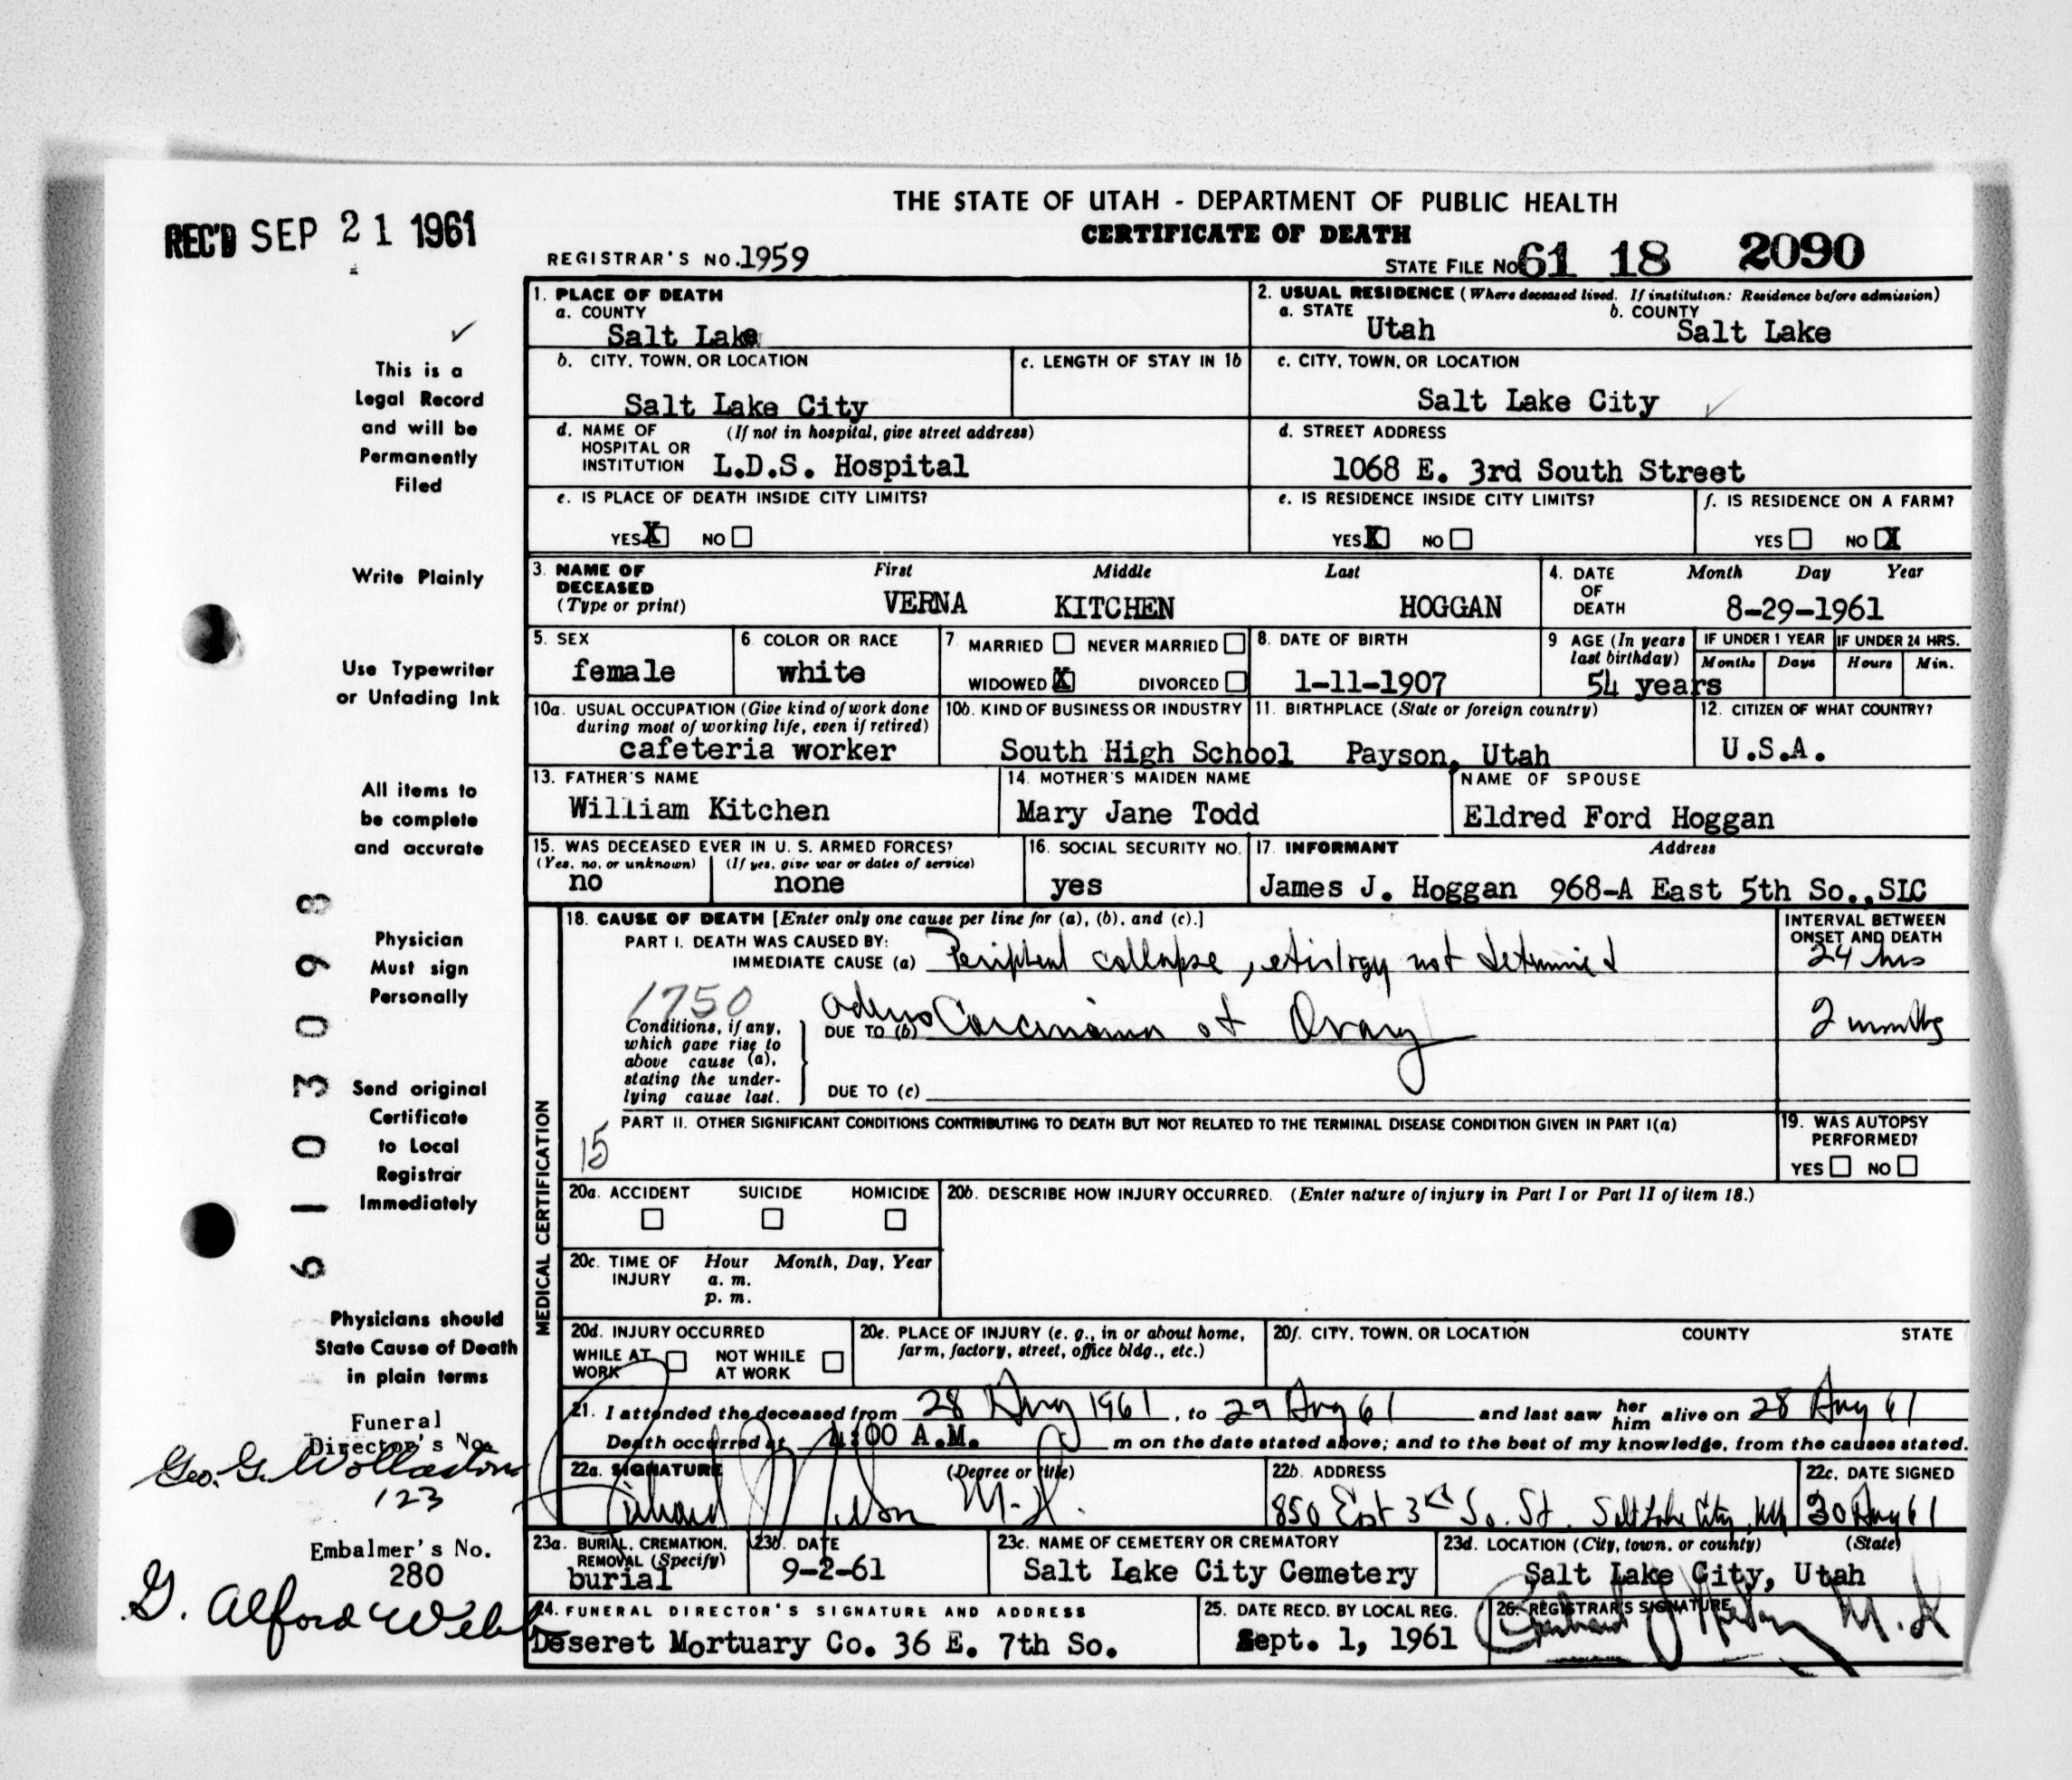 THE STATE OF UTAH - DEPARTMENT OF PUBLIC HEALTH
CERTIFICATE OF DEATH
REC'D SEP 21 1961
REGISTRAR'S NO. 1959
STATE FILE No 61 18 2090
1. PLACE OF DEATH
a. COUNTY
Salt Lake
2. USUAL RESIDENCE (Where deceased lived. If institution: Residence before admission)
a. STATE
Utah
b. COUNTY
Salt Lake
b. CITY, TOWN, OR LOCATION
Salt Lake City
c. LENGTH OF STAY IN 1b
c. CITY, TOWN, OR LOCATION
Salt Lake City
d. NAME OF HOSPITAL OR INSTITUTION
(If not in hospital, give street address)
L.D.S. Hospital
d. STREET ADDRESS
1068 E. 3rd South Street
e. IS PLACE OF DEATH INSIDE CITY LIMITS?
YES X NO
e. IS RESIDENCE INSIDE CITY LIMITS?
YES X NO
f. IS RESIDENCE ON A FARM?
YES NO X
3. NAME OF DECEASED (Type or print)
First Middle Last
VERNA KITCHEN HOGGAN
4. DATE OF DEATH
Month Day Year
8-29-1961
5. SEX
female
6. COLOR OR RACE
white
7 MARRIED NEVER MARRIED
WIDOWED X DIVORCED
8. DATE OF BIRTH
1-11-1907
9 AGE (In years last birthday)
54 years
IF UNDER 1 YEAR
Months Days
IF UNDER 24 HRS.
Hours Min.
10a. USUAL OCCUPATION (Give kind of work done during most of working life, even if retired)
cafeteria worker
10b. KIND OF BUSINESS OR INDUSTRY
South High School
11. BIRTHPLACE (State or foreign country)
Payson, Utah
12. CITIZEN OF WHAT COUNTRY?
U.S.A.
13. FATHER'S NAME
William Kitchen
14. MOTHER'S MAIDEN NAME
Mary Jane Todd
NAME OF SPOUSE
Eldred Ford Hoggan
15. WAS DECEASED EVER IN U. S. ARMED FORCES?
(Yes, no, or unknown) (If yes, give war or dates of service)
no none
16. SOCIAL SECURITY NO.
yes
17. INFORMANT Address
James J. Hoggan 968-A East 5th So., SLC
MEDICAL CERTIFICATION
18. CAUSE OF DEATH [Enter only one cause per line for (a), (b), and (c).]
PART I. DEATH WAS CAUSED BY:
IMMEDIATE CAUSE (a) Peripheral collapse, etiology not determined
INTERVAL BETWEEN ONSET AND DEATH
24 hrs
1750
Conditions, if any, which gave rise to above cause (a), stating the underlying cause last.
DUE TO (b) adeno Carcinoma of Ovary
2 months
DUE TO (c)
PART II. OTHER SIGNIFICANT CONDITIONS CONTRIBUTING TO DEATH BUT NOT RELATED TO THE TERMINAL DISEASE CONDITION GIVEN IN PART I(a)
15
19. WAS AUTOPSY PERFORMED?
YES NO
20a. ACCIDENT SUICIDE HOMICIDE
20b. DESCRIBE HOW INJURY OCCURRED. (Enter nature of injury in Part I or Part II of item 18.)
20c. TIME OF INJURY
Hour Month, Day, Year
a. m.
p. m.
20d. INJURY OCCURRED
WHILE AT WORK NOT WHILE AT WORK
20e. PLACE OF INJURY (e. g., in or about home, farm, factory, street, office bldg., etc.)
20f. CITY, TOWN, OR LOCATION COUNTY STATE
21. I attended the deceased from 28 Aug 1961, to 29 Aug 61 and last saw her him alive on 28 Aug 61
Death occurred at 4:00 A.M. m on the date stated above; and to the best of my knowledge, from the causes stated.
22a. SIGNATURE (Degree or title)
Richard Nelson M.D.
22b. ADDRESS
850 East 3rd So. St. Salt Lake City, Ut
22c. DATE SIGNED
30 Aug 61
23a. BURIAL, CREMATION, REMOVAL (Specify)
burial
23b. DATE
9-2-61
23c. NAME OF CEMETERY OR CREMATORY
Salt Lake City Cemetery
23d. LOCATION (City, town, or county) (State)
Salt Lake City, Utah
24. FUNERAL DIRECTOR'S SIGNATURE AND ADDRESS
Deseret Mortuary Co. 36 E. 7th So.
25. DATE RECD. BY LOCAL REG.
Sept. 1, 1961
26. REGISTRAR'S SIGNATURE
M.D.
This is a
Legal Record
and will be
Permanently
Filed
Write Plainly
Use Typewriter
or Unfading Ink
All items to
be complete
and accurate
Physician
Must sign
Personally
Send original
Certificate
to Local
Registrar
Immediately
Physicians should
State Cause of Death
in plain terms
61 03098
Funeral
Director's No.
Geo. G. Wollaston
123
Embalmer's No.
280
G. Alford Webb